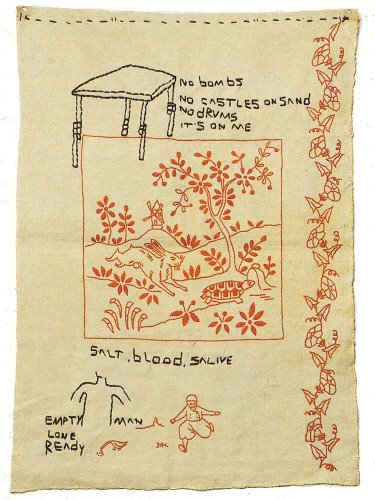 NO bOMbS
NO CASTLES ON SAND
NO DRUMS
IT'S ON ME
SALT, blOOD, SALIVE
EMPTY MAN
LONE
READY